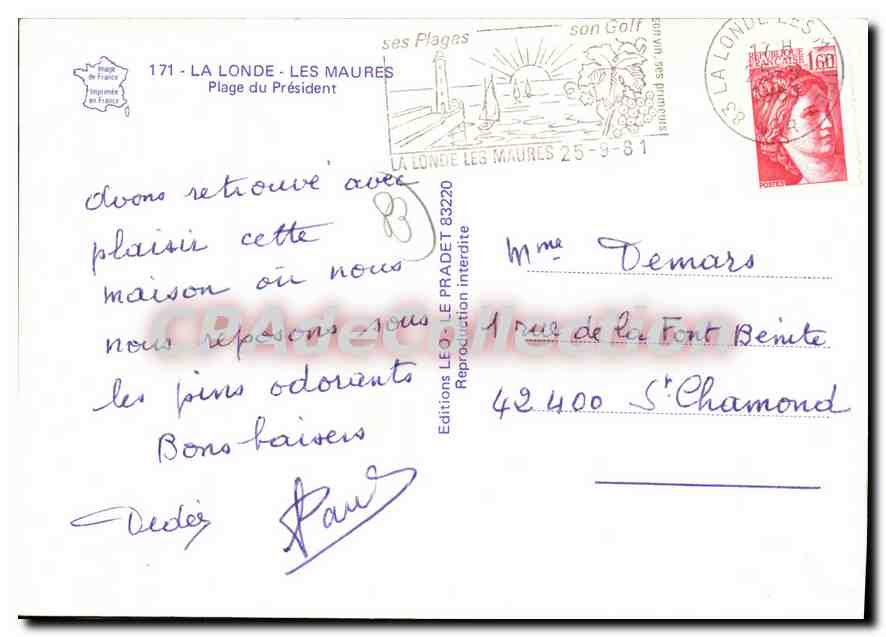 Image
de France
Imprimée
en France
171 - LA LONDE - LES MAURES
Plage du Président
ses Plages son Golf
son vin, ses primeurs
LA LONDE LES MAURES 25-9-81
83 LA LONDE LES M
17 H
REPUBLIQUE
FRANÇAISE
1,60
POSTES
avons retrouvé avec
plaisir cette
maison où nous
nous reposons sous
les pins odorants
Bons baisers
Dédée
83
Editions LEO - LE PRADET 83220
Reproduction interdite
Mme Demars
1 rue de la Font Bénite
42400 St Chamond
CPAdeCollection